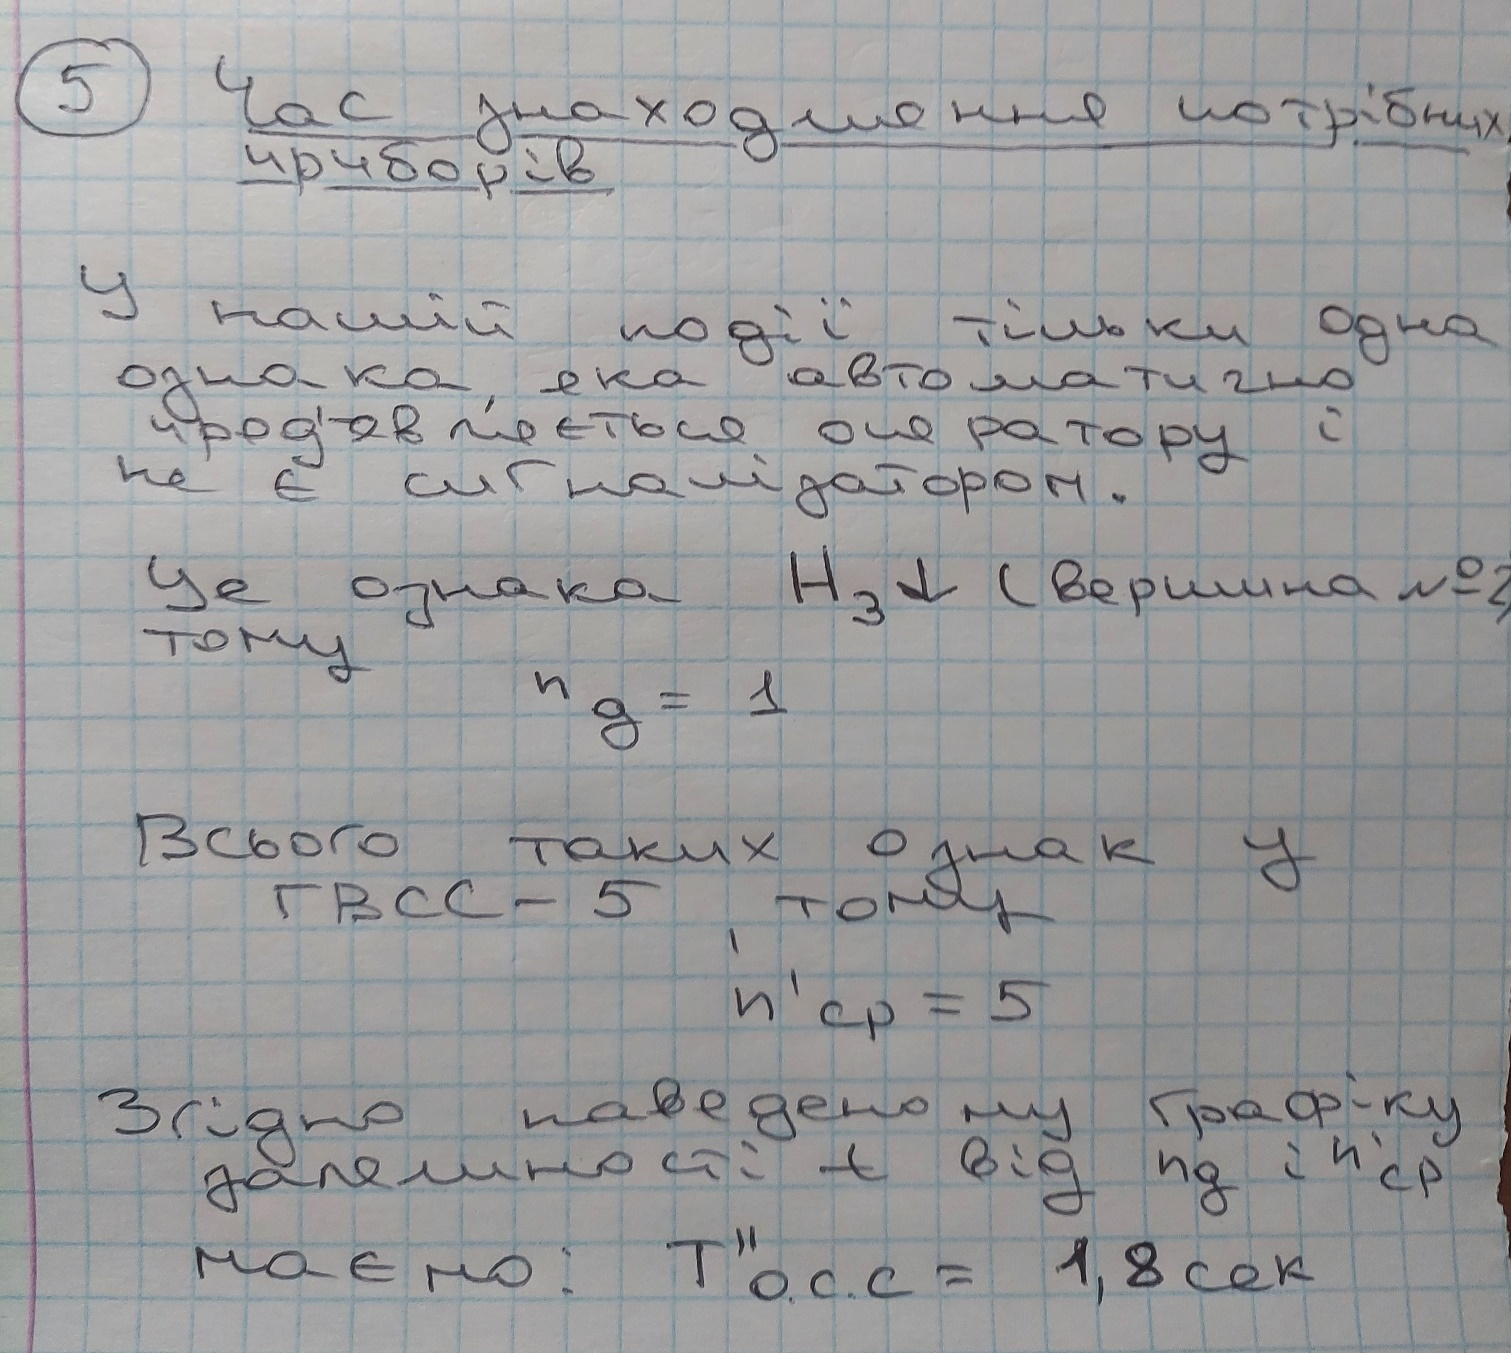 5 Час знаходження потрібних
приборів
У нашій події тільки одна
ознака, яка автоматично
пред'являється оператору і
не є сигналізатором.
Це ознака H₃↓ (вершина №2)
тому
nд = 1
Всього таких ознак у
ГВСС - 5 тому
n'ср = 5
Згідно наведеному графіку
залежності t від nд і n'ср
маємо: T"о.с.с = 1,8 сек